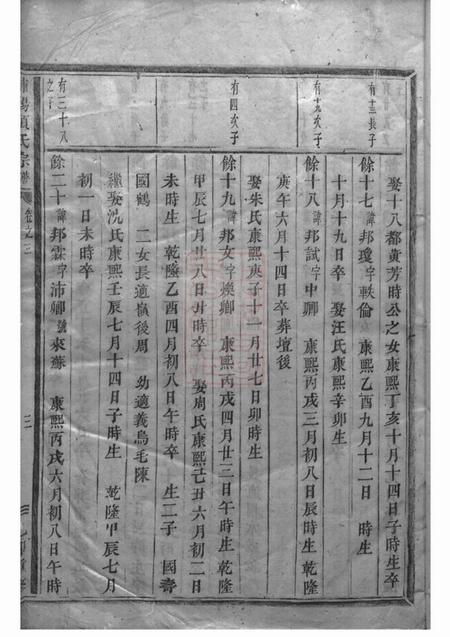 娶十八都黃芳時公之女康熙丁亥十月十四日子時生卒
有十三長子
餘十七諱邦瓊字軼倫 康熙乙酉九月十二日 時生
十月十九日卒 娶汪氏康熙辛卯生
有十五次子
餘十八諱邦試字中卿 康熙丙戌三月初八日辰時生 乾隆
庚午六月十四日卒葬壇後
娶朱氏康熙庚子十一月廿七日卯時生
有四次子
餘十九諱邦女字爍卿 康熙丙戌四月廿三日午時生 乾隆
甲辰七月廿八日丑時卒 娶周氏康熙己丑六月初二日
未時生 乾隆乙酉四月初八日午時卒 生二子 國壽
國鶴 二女長適嶺後周 幼適義烏毛陳
繼娶沈氏康熙壬辰七月十四日子時生 乾隆甲辰七月
初一日未時卒
有三十八
之子
餘二十諱邦霖字沛卿號來蘇 康熙丙戌六月初八日午時
陽項氏宗譜 卷之三 三